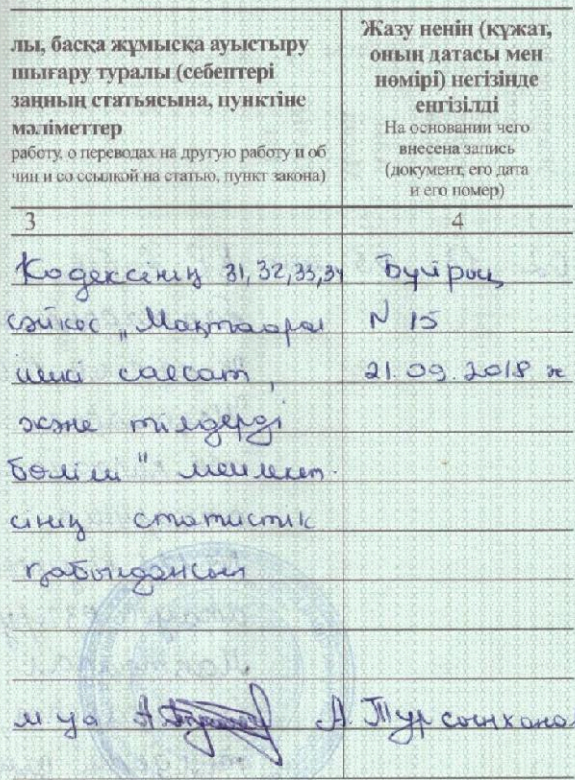 лы, басқа жұмысқа ауыстыру
шығару туралы (себептері
заңның статьясына, пунктіне
мәліметтер
работу, о переводах на другую работу и об
чин и со ссылкой на статью, пункт закона)
Жазу ненің (құжат,
оның датасы мен
нөмірі) негізінде
енгізілді
На основании чего
внесена запись
(документ, его дата
и его номер)
3 4
Кодексінің 31,32,33,34 Бұйрық
сәйкес „Мақтаарал N 15
ішкі саясат, 21.09.2018 ж
және тілдерді
бөлімі" мемлекет-
сінің статистик
қабылдансын
А. Турсынхана